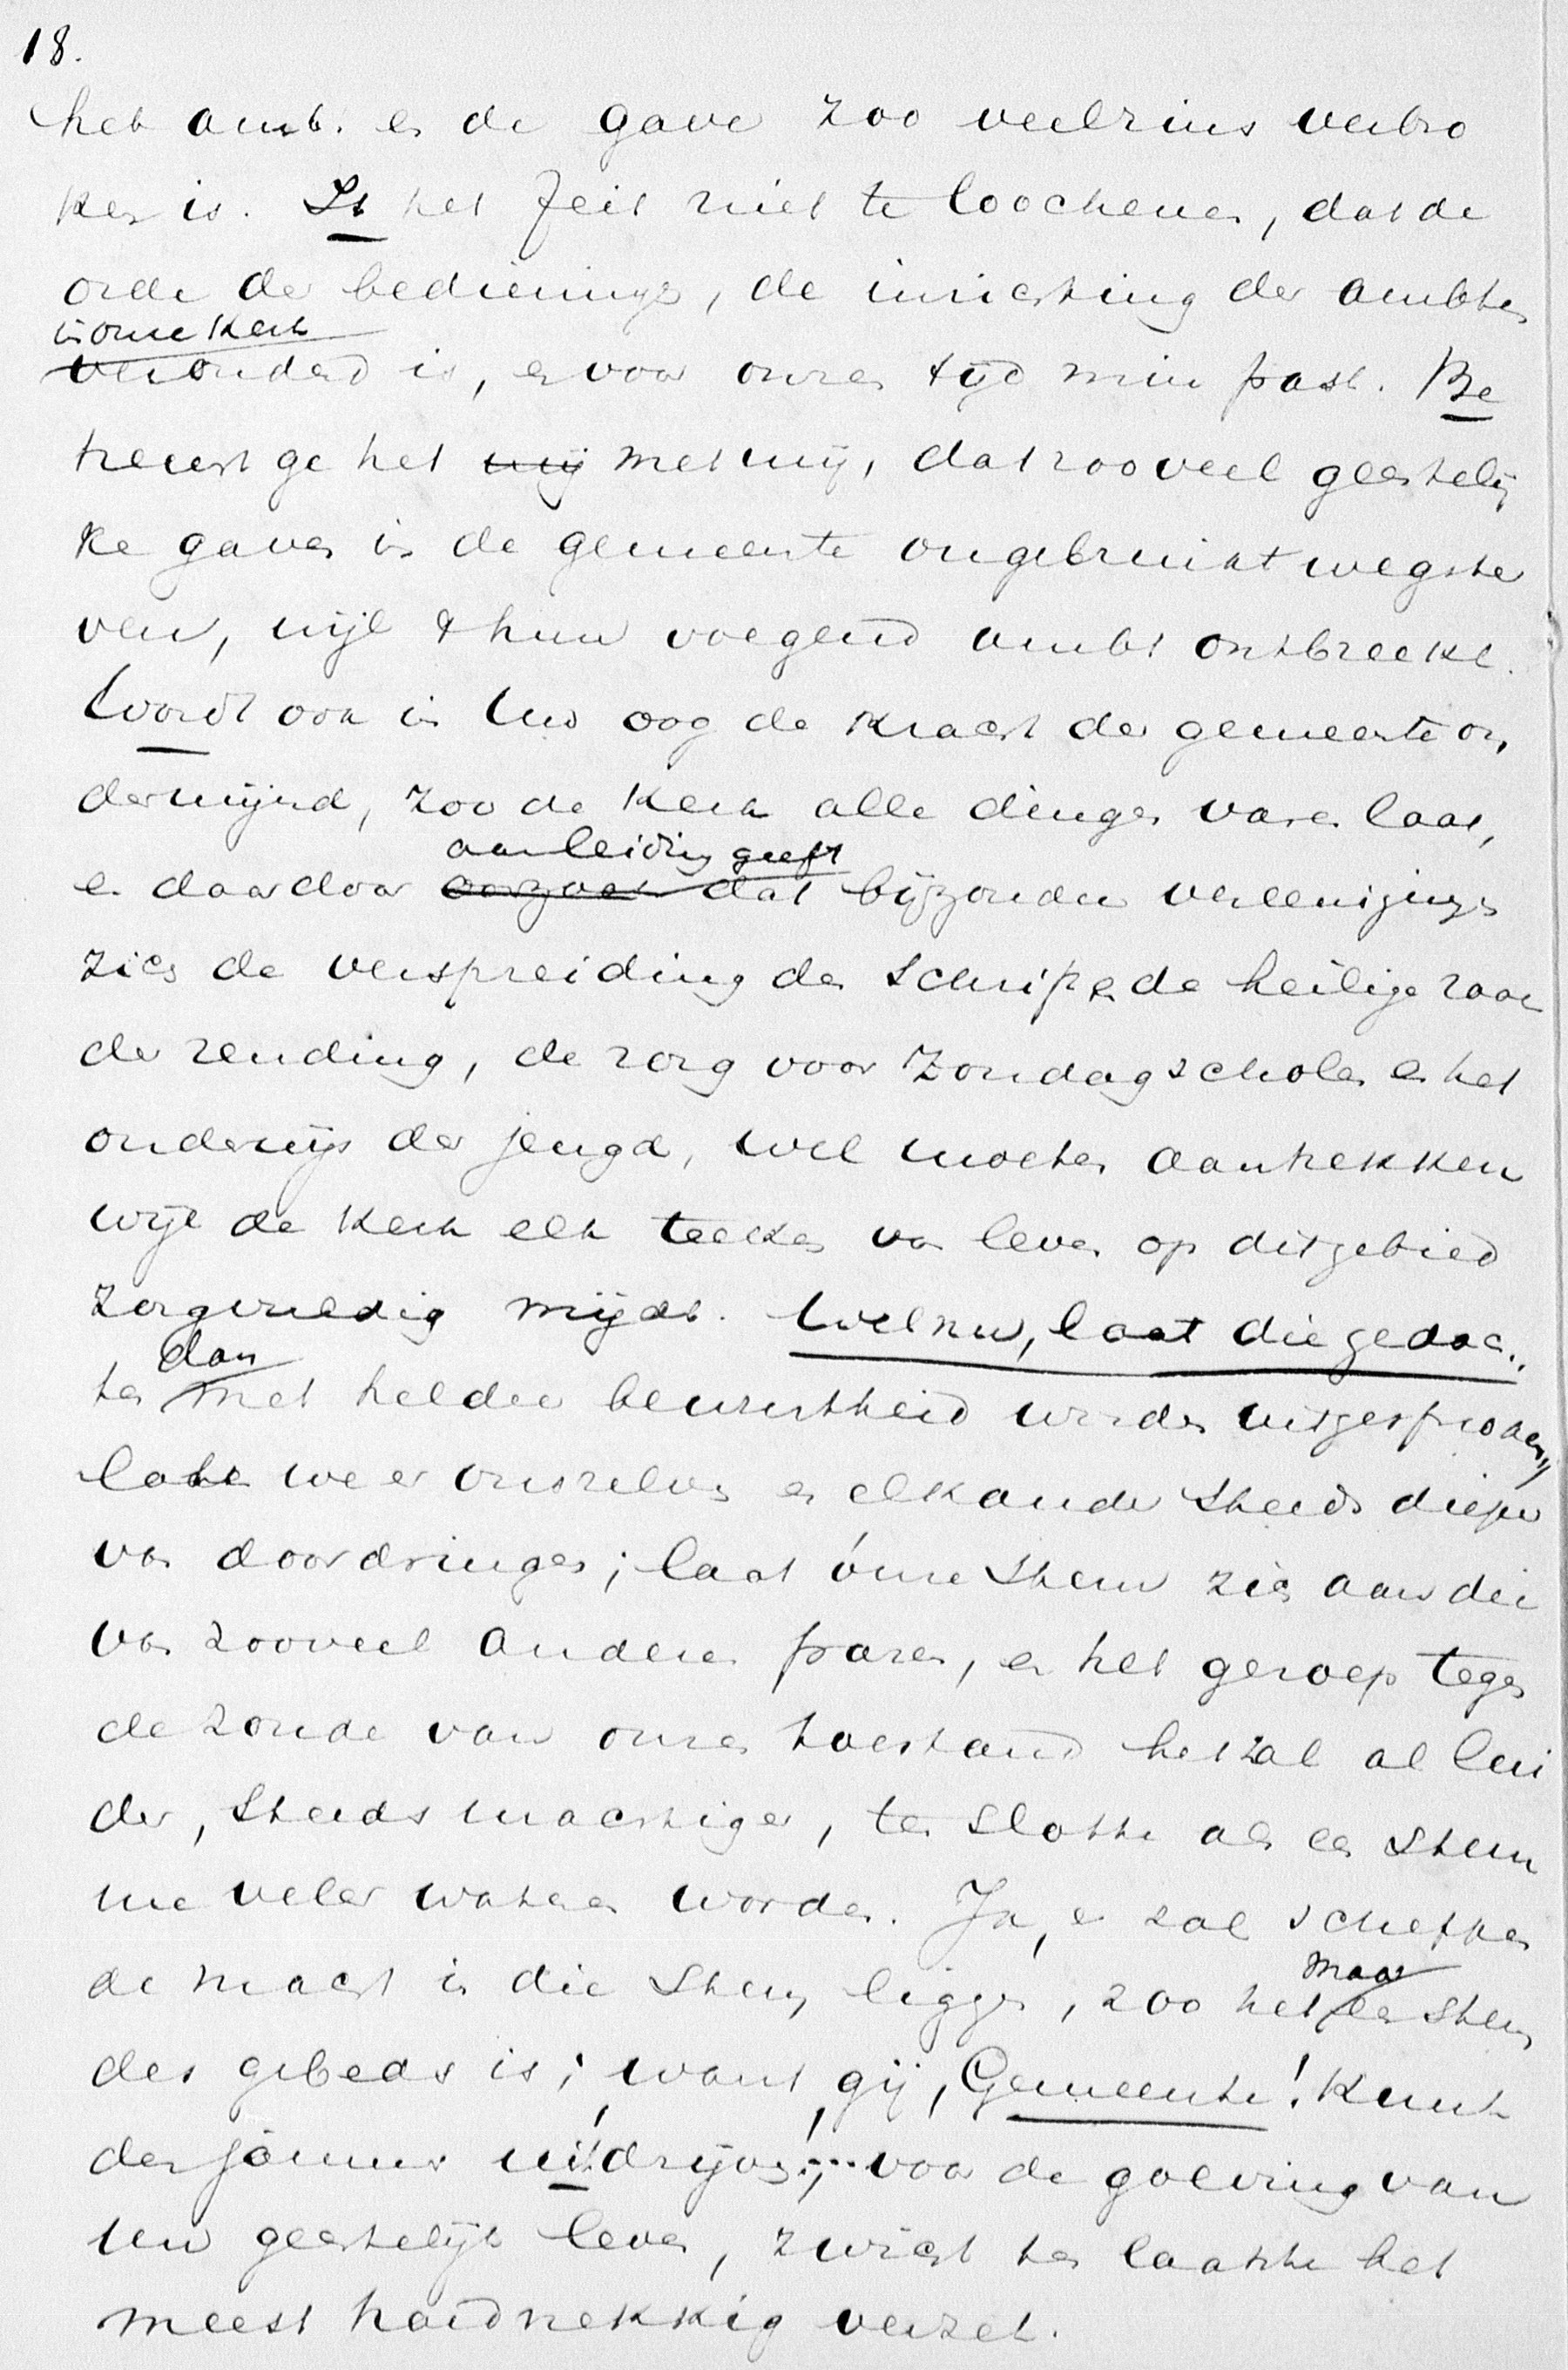 18.
het ambt en de gave zoo veelzins verbro
ken is. Is het feit niet te loochenen, dat de
orde der bedieningen, de inrichting der ambten
in onze kerk
verouderd is, en voor onzen tijd min past. Be
treurt ge het mij met mij, dat zooveel geestelij
ke gaven in de gemeente ongebruikt wegster
ven, wijl 't hun voegend ambt ontbreekt.
Wordt ook in Uw oog de kracht der gemeente on,
dermijnd, zoo de kerk alle dingen varen laat,
aanleiding geeft
en daardoor oorzaak dat bijzondere vereenigingen
zich de verspreiding der Schrift, en de heilige zaak
der zending, de zorg voor Zondagscholen en het
onderwijs der jeugd, wel moeten aantrekken
wijl de kerk elk teeken van leven op dit gebied
zorgvuldig mijdt. Welnu, laat die gedach..
dan
ten met heldere bewustheid worden uitgesproken,
laten we er onszelven en elkander steeds dieper
van doordringen; laat ónze stem zich aan die
van zooveel anderen paren, en het geroep tegen
de zonde van onzen toestand het zal al lui
der, steeds machtiger, ten slotte als een stem
me veler wateren worden. Ja, er zal scheppen
de macht in die stem liggen, zoo het
maar
een stem
des gebeds is; want, gij, Gemeente! kunt
den Satan uitdrijven; voor de golving van
uw geestelijk leven, zwicht ten laatste het
meest hardnekkig verzet.